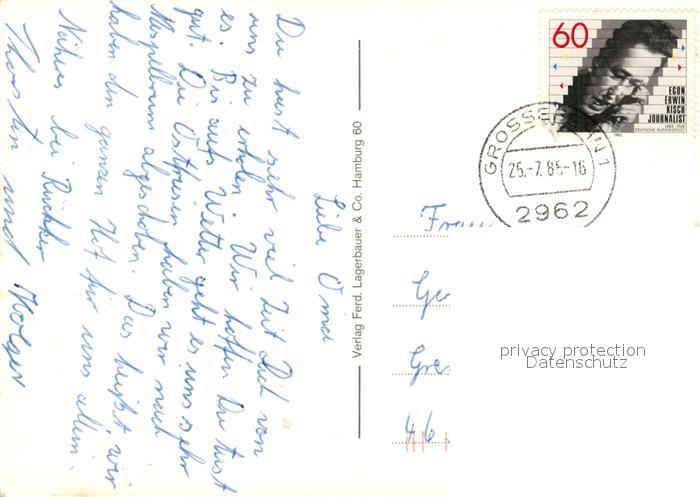 Liebe Oma
Du hast sehr viel Zeit Dich von
uns zu erholen. Wir hoffen Du tust
es. Bis aufs Wetter geht es uns sehr
gut. Die Ostfriesen haben wir nach
abgeschoben. Das heißt, wir
haben den ganzen Hof für uns allein.
Näheres bei Rückkehr
Thorsten und Holger
Verlag Ferd. Lagerbauer & Co. Hamburg 60
60
EGON
ERWIN
KISCH
JOURNALIST
1885-1948
DEUTSCHE BUNDESPOST
1985
25.-7.85-16
2962
Frau
Ge
Gre
46
privacy protection
Datenschutz